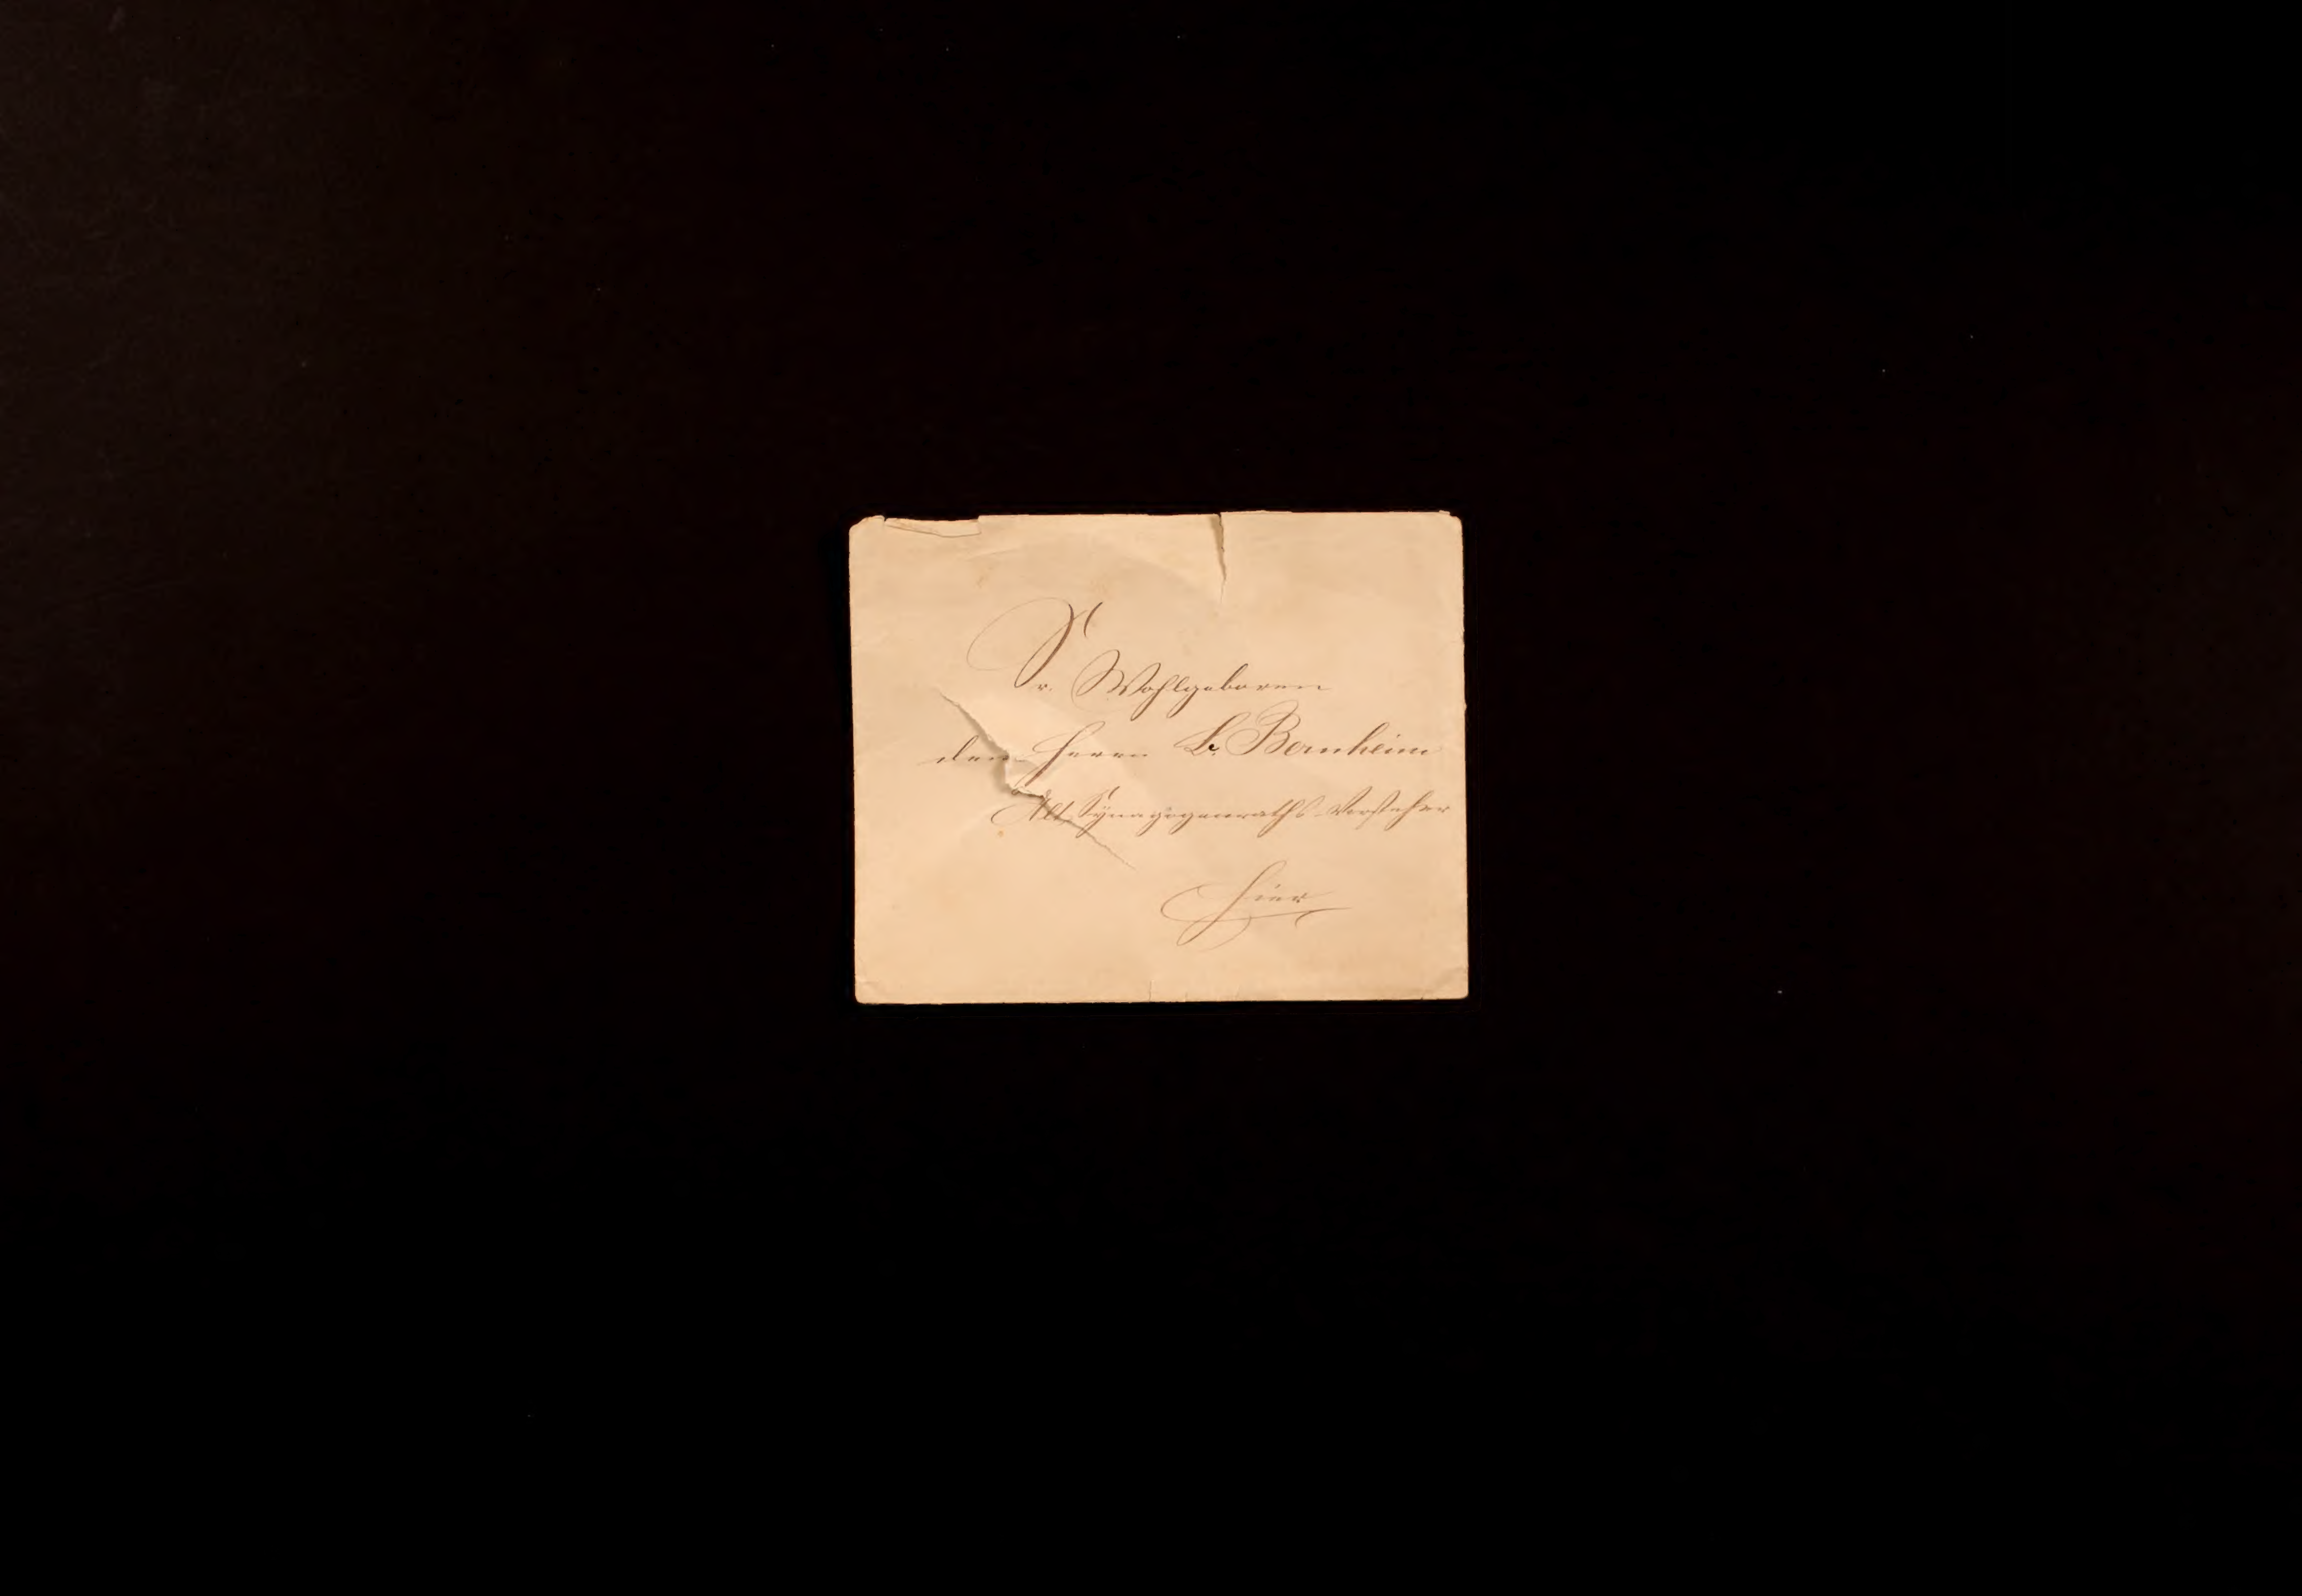 Sr. Wohlgeboren
dem Herrn L. Bernheim
Alt Synagogenraths-Vorsteher
Hier